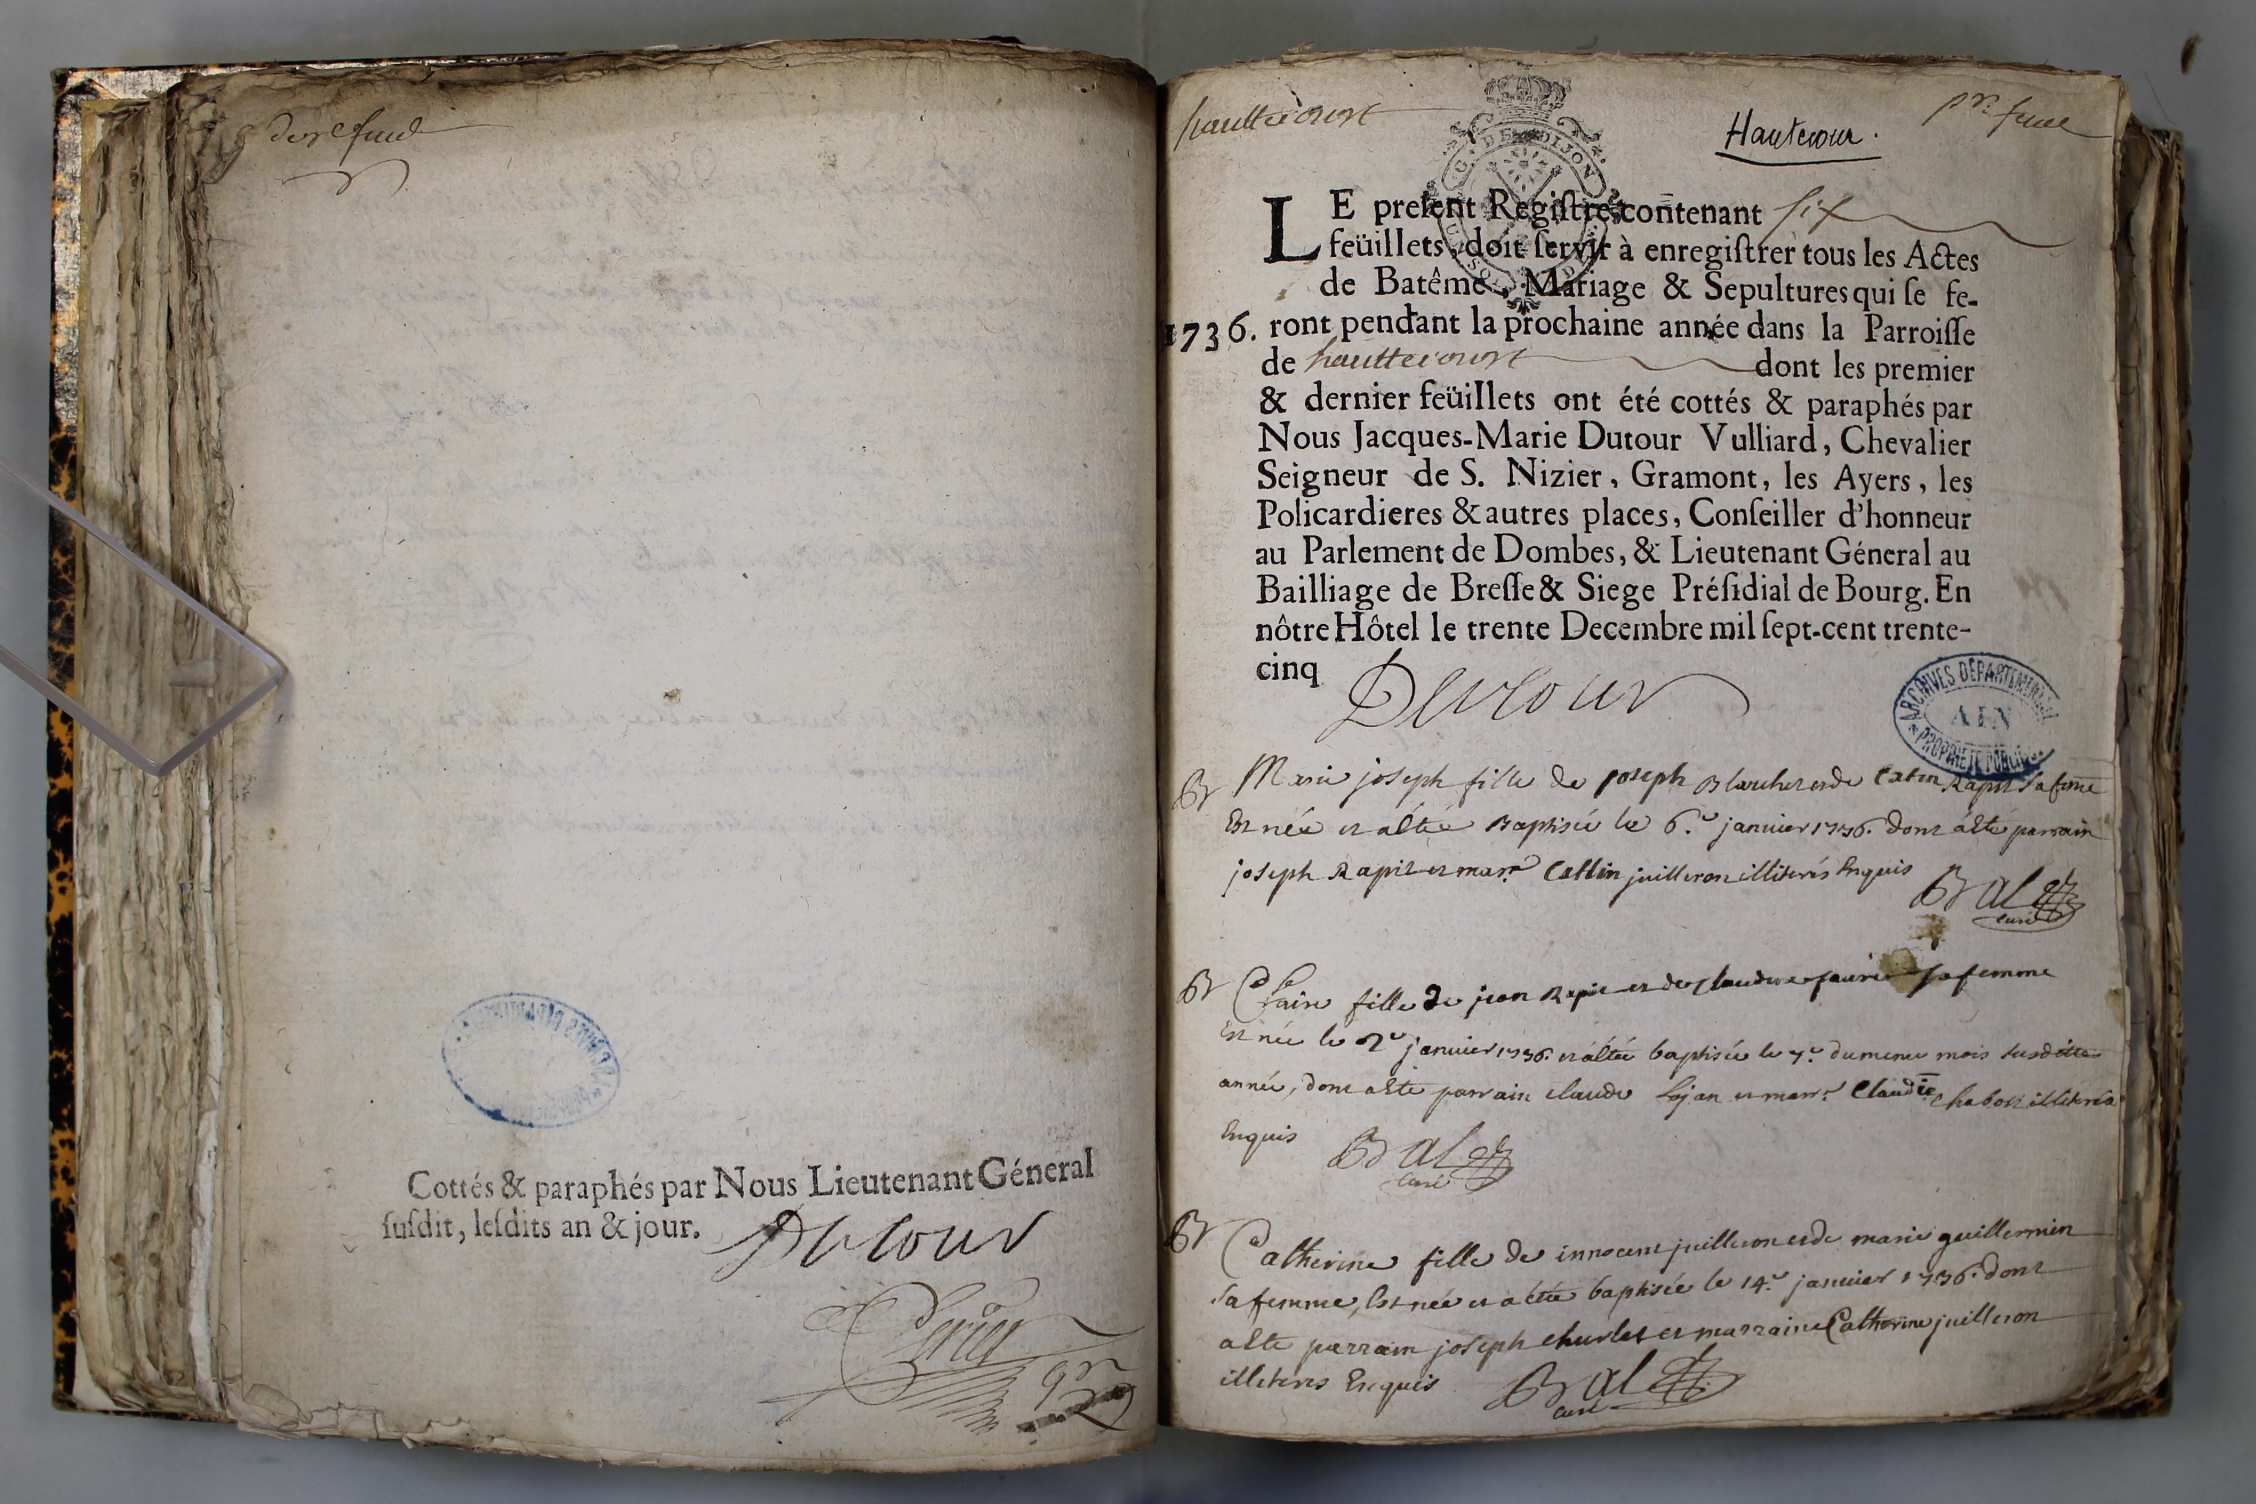 Cottés & paraphés par Nous Lieutenant Géneral
ſuſdit, leſdits an & jour. Dutour
hauttecourt
Hautecour.
G. DE DIJON
LE preſent Regiſtre contenant ſix
feüillets, doit ſervir à enregiſtrer tous les Actes
de Batême, Mariage & Sepultures qui ſe fe-
1736. ront pendant la prochaine année dans la Parroiſſe
de hauttecourt dont les premier
& dernier feüillets ont été cottés & paraphés par
Nous Jacques-Marie Dutour Vulliard, Chevalier
Seigneur de S. Nizier, Gramont, les Ayers, les
Policardieres & autres places, Conſeiller d'honneur
au Parlement de Dombes, & Lieutenant Géneral au
Bailliage de Breſſe & Siege Préſidial de Bourg. En
nôtre Hôtel le trente Decembre mil ſept-cent trente-
cinq
Dutour
ARCHIVES DÉPARTEMENTALES
AIN
PROPRIÉTÉ PUBLIQUE
Marie joseph fille de joseph Blanchet et de Catin Rapit sa feme
Est née et a esté Baptisée le 6.e janvier 1736. dont a esté parrain
joseph Rapit et marr.e Cattin juilleron illiterés Enquis
Balet
curé
Claire fille de jean Rapit et de Claudine sa femme
Est née le janvier 1736. et a esté baptisée le 7.e du meme mois susditte
année, dont a esté parrain claude Lojan et marr.e Claudie chabot illiterés
Enquis Balet
curé
Catherine fille de innocent juilleron et de marie guillermin
sa femme, Est née et a étée baptisée le 14.e janvier 1736. dont
a esté parrain joseph churlet et marraine Catherine juilleron
illiteres Enquis Balet
curé